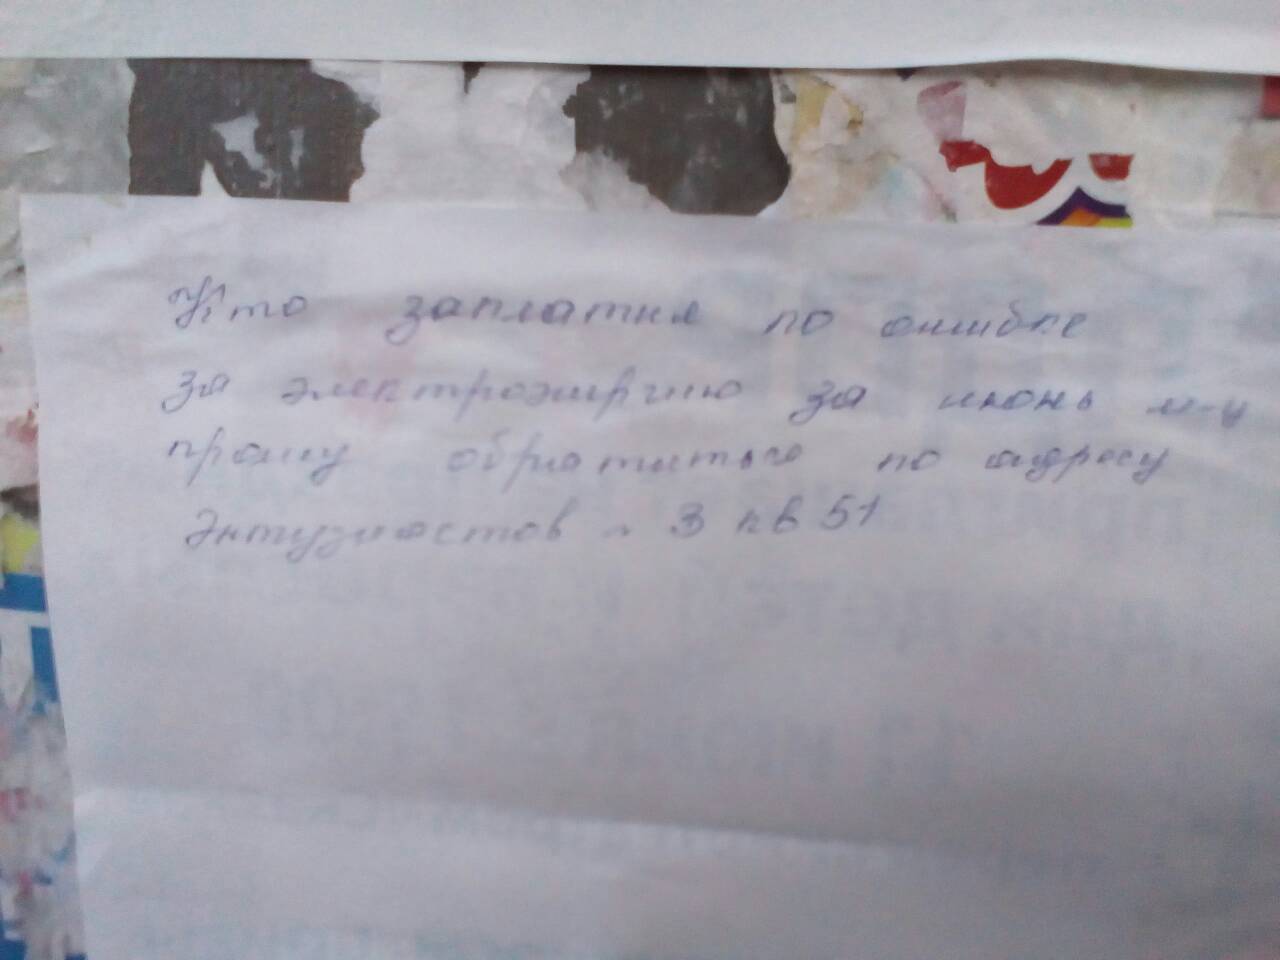 Кто заплатил по ошибке
за электроэнергию за июнь м-ц
прошу обратиться по адресу
Энтузиастов - 3 кв 51